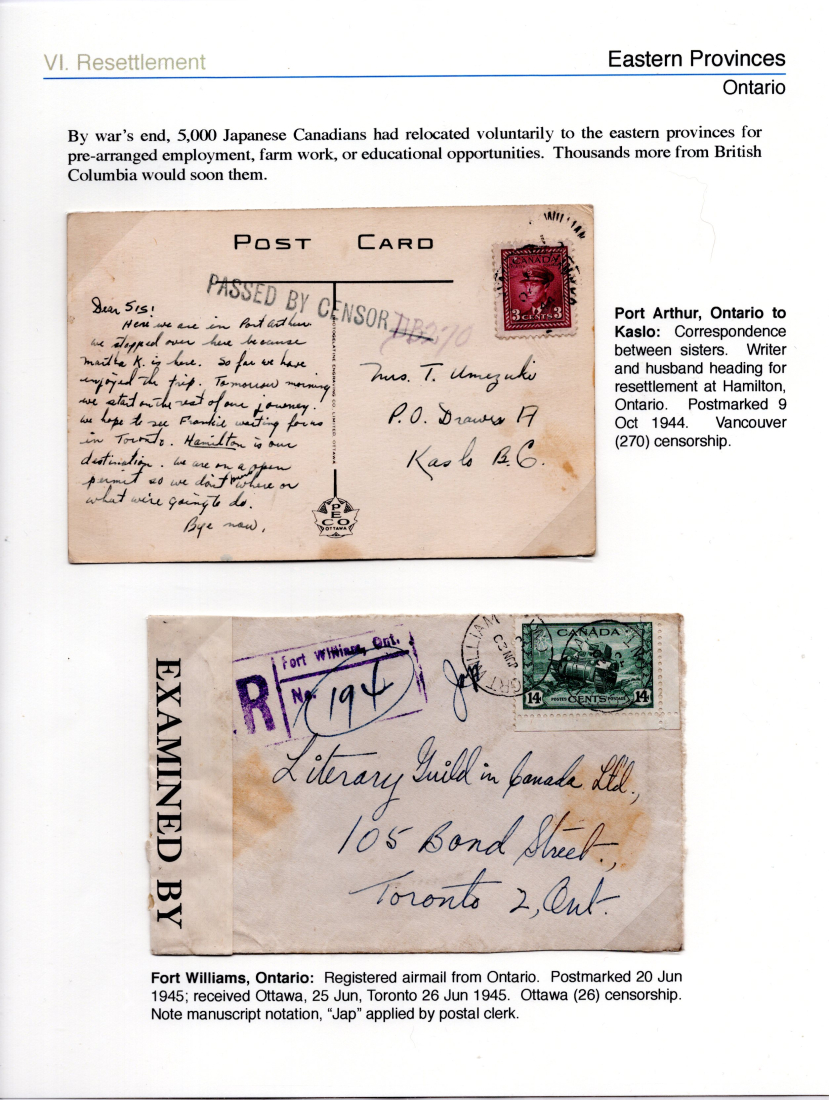 VI. Resettlement
Eastern Provinces
Ontario
By war's end, 5,000 Japanese Canadians had relocated voluntarily to the eastern provinces for
pre-arranged employment, farm work, or educational opportunities. Thousands more from British
Columbia would soon them.
POST CARD
PASSED BY CENSOR
DB270
CANADA
3 CENTS 3
Dear Sis!
Here we are in Port Arthur
we stopped over here because
martha K. is here. So far we have
enjoyed the trip. Tomorrow morning
we start on the rest of our journey.
We hope to see Frankie waiting for us
in Toronto. Hamilton is our
destination. We are on a open
permit so we don't where or
what we're going to do.
Bye now,
Mrs. T. Umezuki
P.O. Drawer A
Kaslo B.C.
PECO
OTTAWA
Port Arthur, Ontario to
Kaslo: Correspondence
between sisters. Writer
and husband heading for
resettlement at Hamilton,
Ontario. Postmarked 9
Oct 1944. Vancouver
(270) censorship.
EXAMINED BY
R
Fort William, Ont.
No. 194
Jap
CANADA
14 POSTES CENTS POSTAGE 14
Literary Guild in Canada Ltd.,
105 Bond Street.,
Toronto 2, Ont.
Fort Williams, Ontario: Registered airmail from Ontario. Postmarked 20 Jun
1945; received Ottawa, 25 Jun, Toronto 26 Jun 1945. Ottawa (26) censorship.
Note manuscript notation, "Jap" applied by postal clerk.